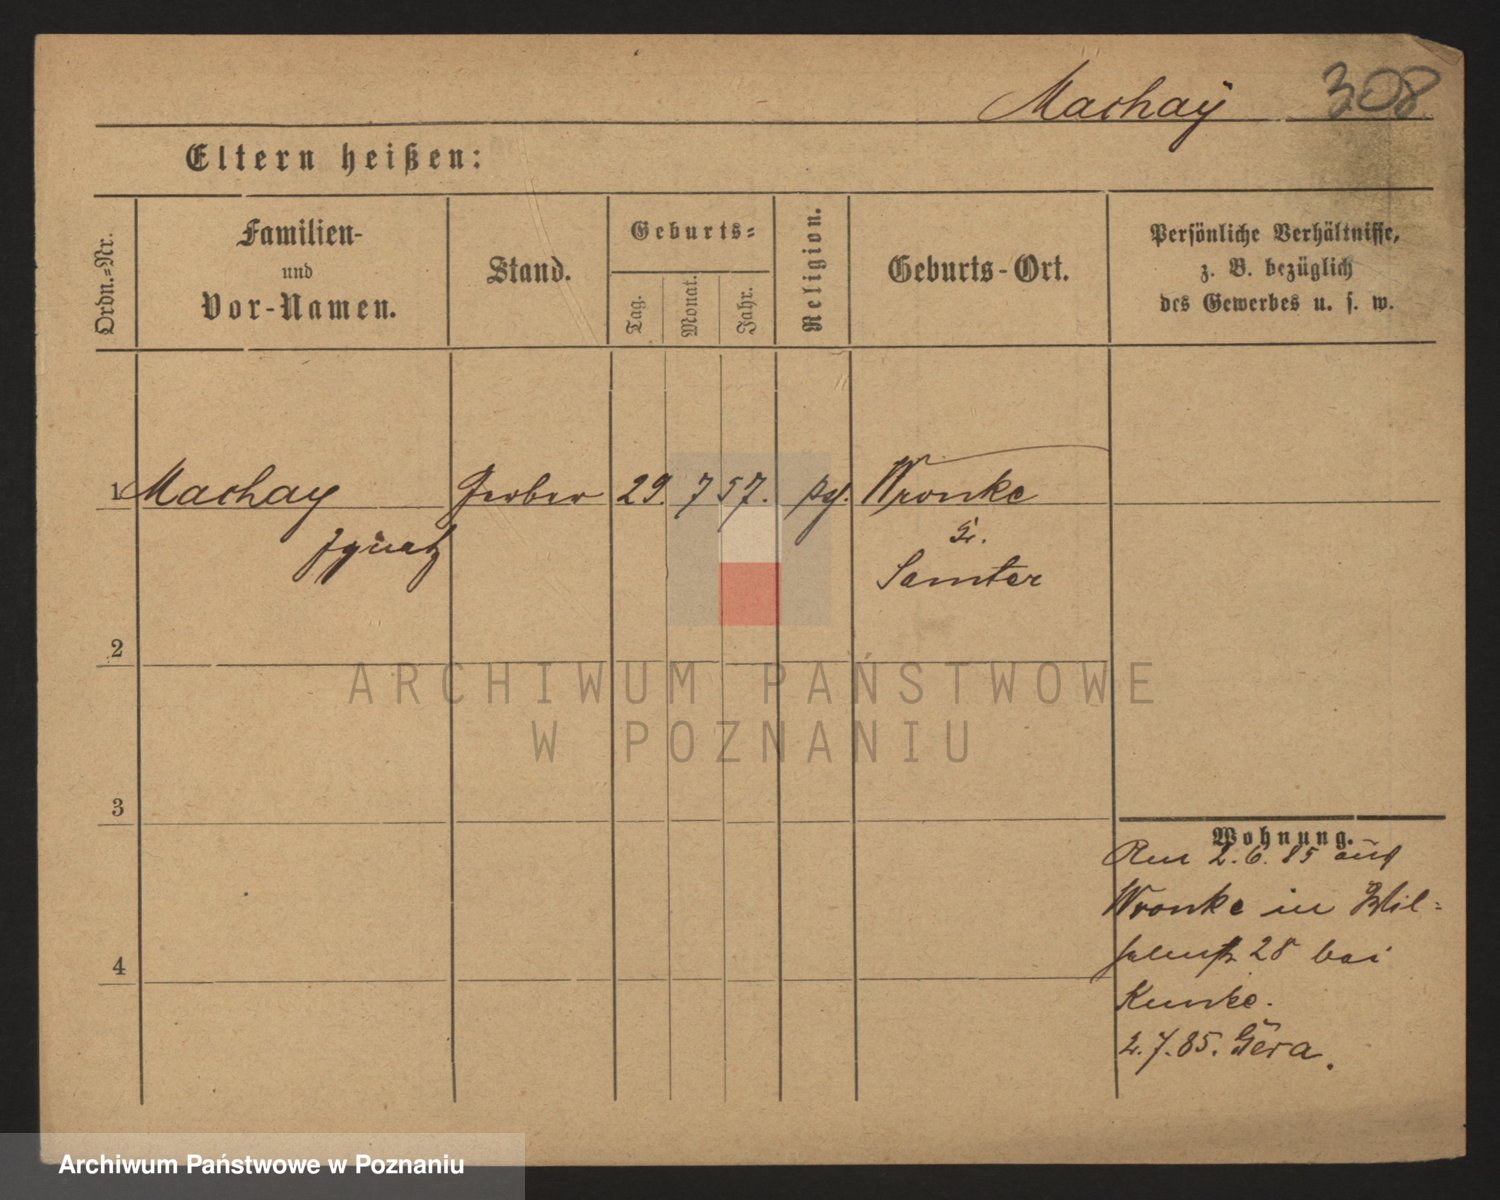 Machaÿ 308
Eltern heißen:
Ordn.=Nr.
Familien-
und
Vor-Namen.
Stand.
Geburts=
Tag.
Monat.
Jahr.
Religion.
Geburts-Ort.
Persönliche Verhältnisse,
z. B. bezüglich
des Gewerbes u. s. w.
1 Machay Gerber 29. 7 57. Wronke
Ignatz
Samter
2
ARCHIWUM PAŃSTWOWE
W POZNANIU
3
Wohnung.
2. 6. 85 aus
Wronke in Wil=
28 bei
Kunke.
2. 7. 85. Gera.
4
Archiwum Państwowe w Poznaniu